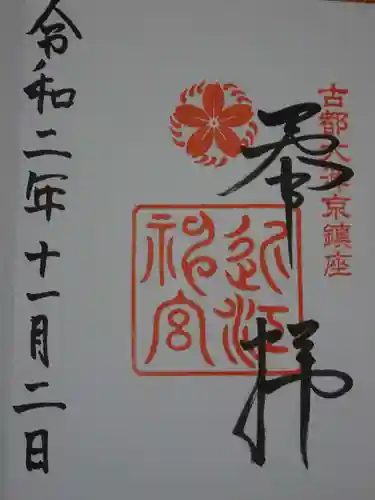 古都大津京鎮座
奉拝
近江神宮
令和二年十一月二日